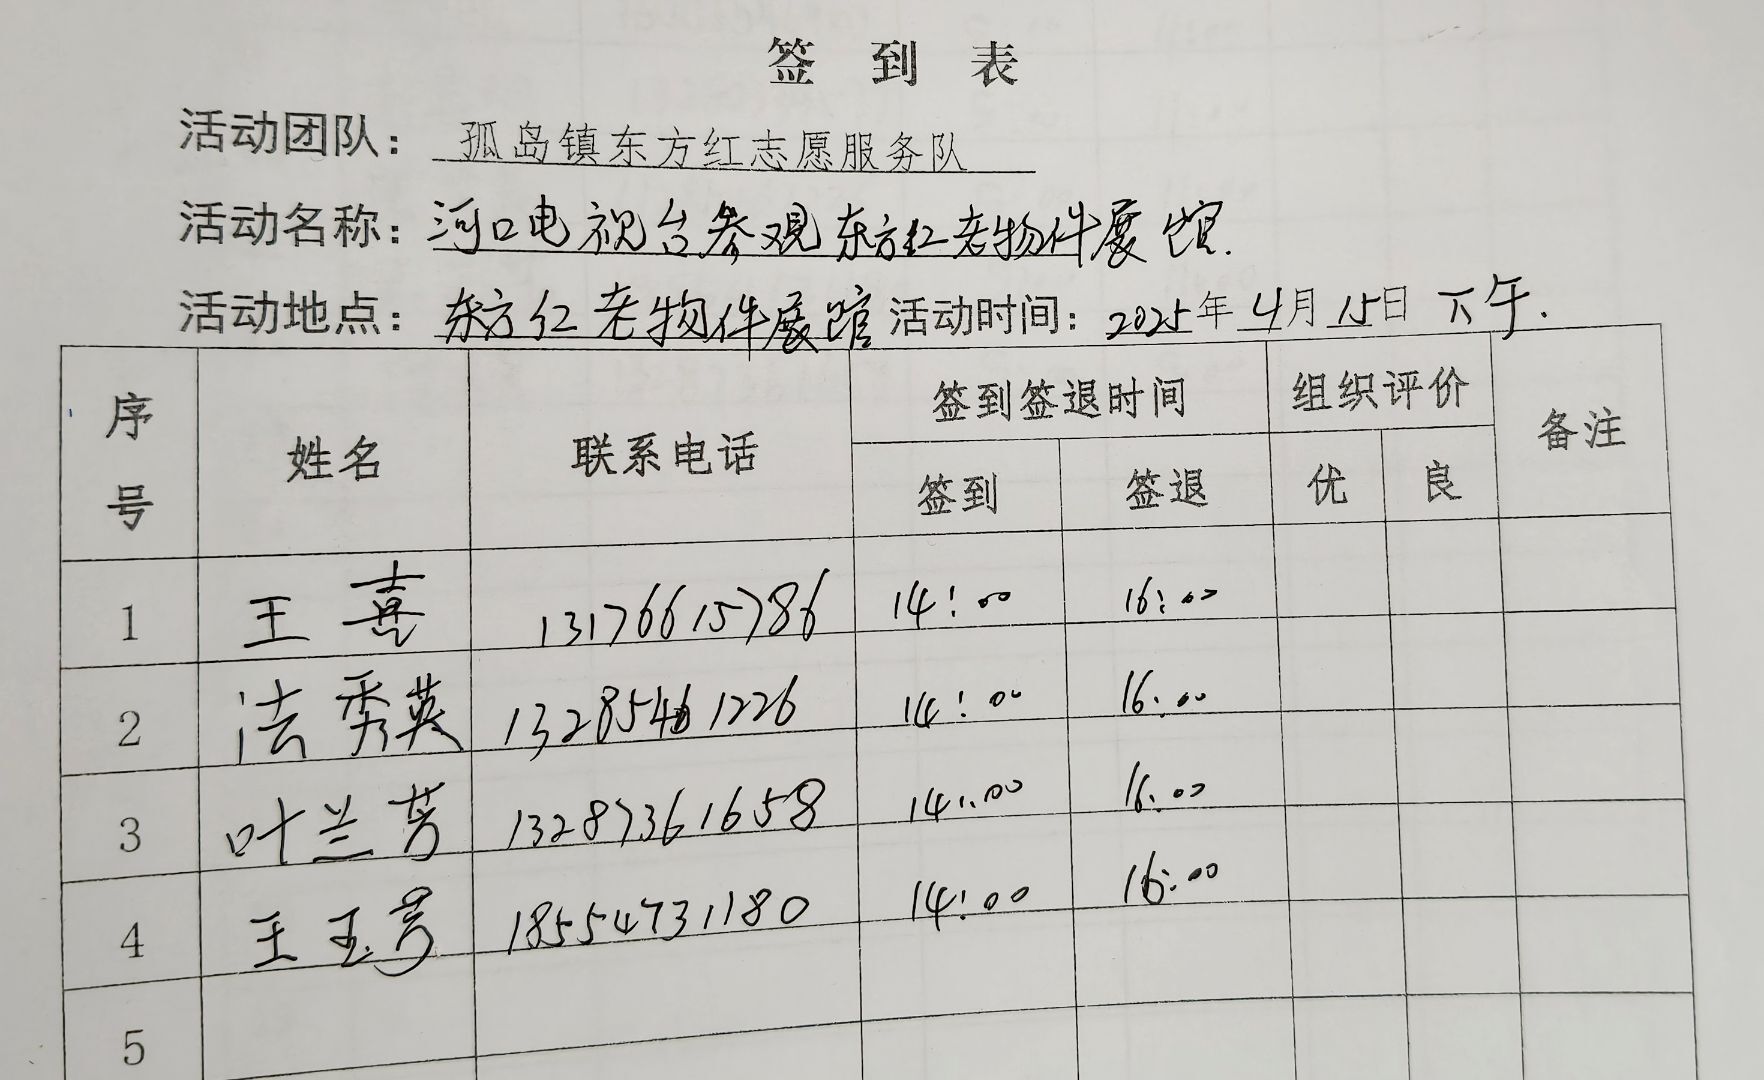 签到表
活动团队：孤岛镇东方红志愿服务队
活动名称：河口电视台参观东方红老物件展馆.
活动地点：东方红老物件展馆 活动时间：2025年4月15日 下午.
序号 姓名 联系电话 签到签退时间 组织评价 备注
签到 签退 优 良
1 王喜 13176615786 14:00 16:00
2 法秀英 13285461226 14:00 16:00
3 叶兰芳 13287361658 14:00 16:00
4 王玉 18554731180 14:00 16:00
5